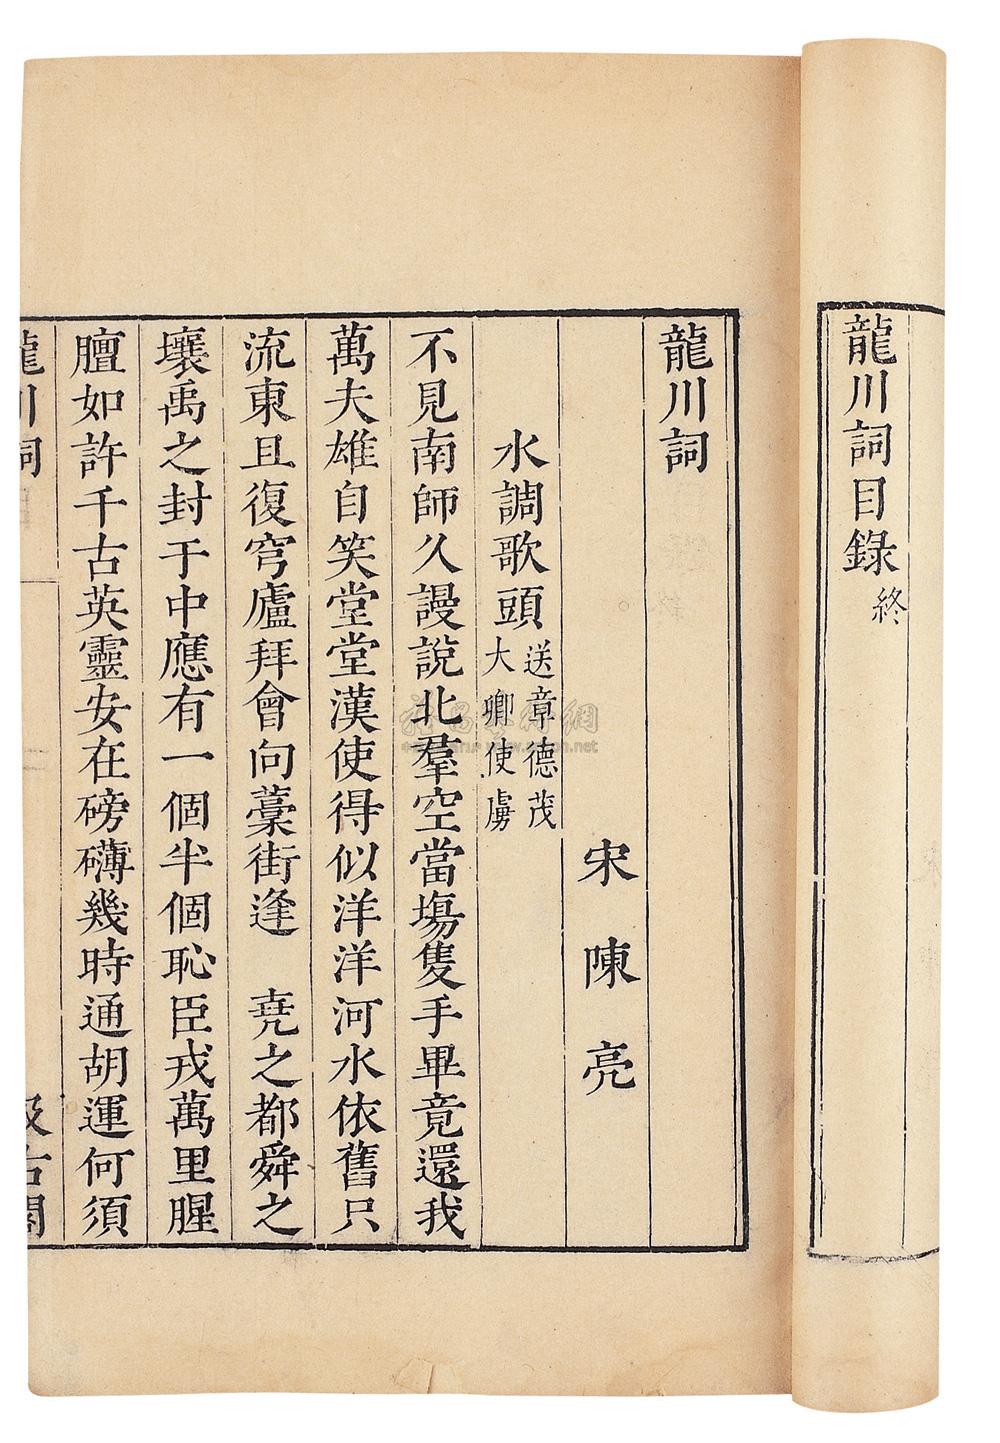 龍川詞目錄終
龍川詞
宋陳亮
水調歌頭送章德茂大卿使虜
不見南師久謾說北羣空當塲隻手畢竟還我
萬夫雄自笑堂堂漢使得似洋洋河水依舊只
流東且復穹廬拜會向藁街逢　堯之都舜之
壤禹之封于中應有一個半個恥臣戎萬里腥
膻如許千古英靈安在磅礴幾時通胡運何須
龍川詞
汲古閣